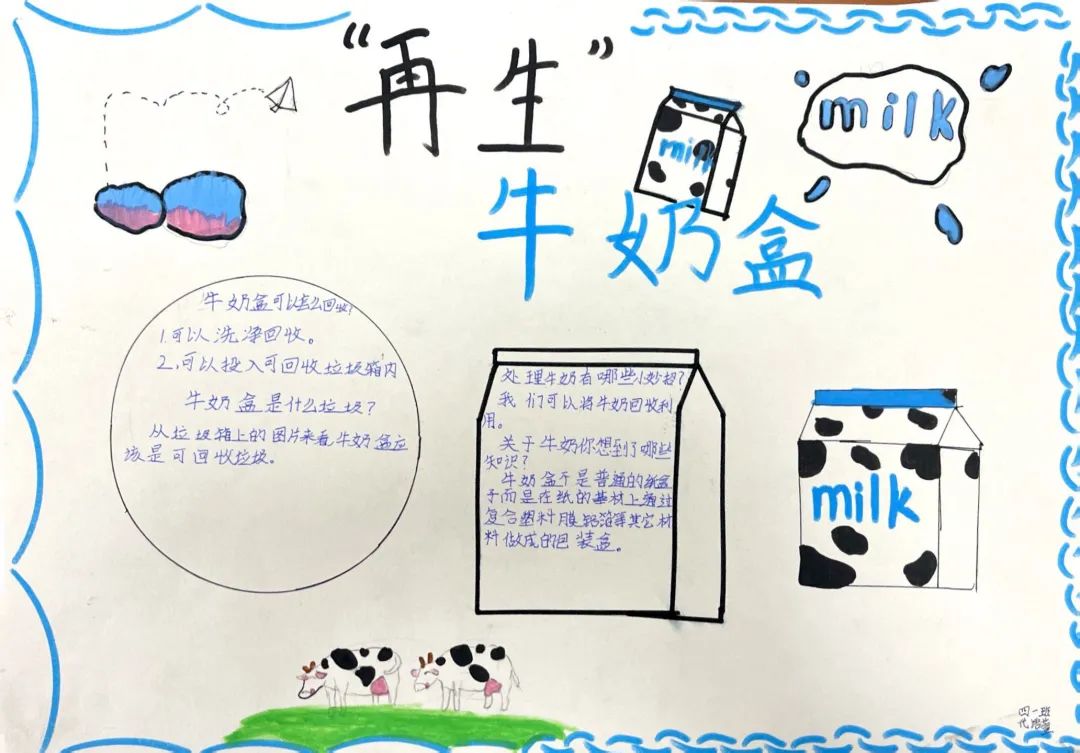 “再生”
牛奶盒
milk
milk
牛奶盒可以怎么回收?
1.可以洗净回收。
2.可以投入可回收垃圾箱内
牛奶盒是什么垃圾?
从垃圾箱上的图片来看牛奶盒应
该是可回收垃圾。
处理牛奶有哪些小妙招?
我们可以将牛奶回收利
用。
关于牛奶你想到了哪些
知识?
牛奶盒不是普通的纸盒
于而是在纸的基材上通过
复合塑料膜铝箔等其它材
料做成的包装盒。
milk
四一班